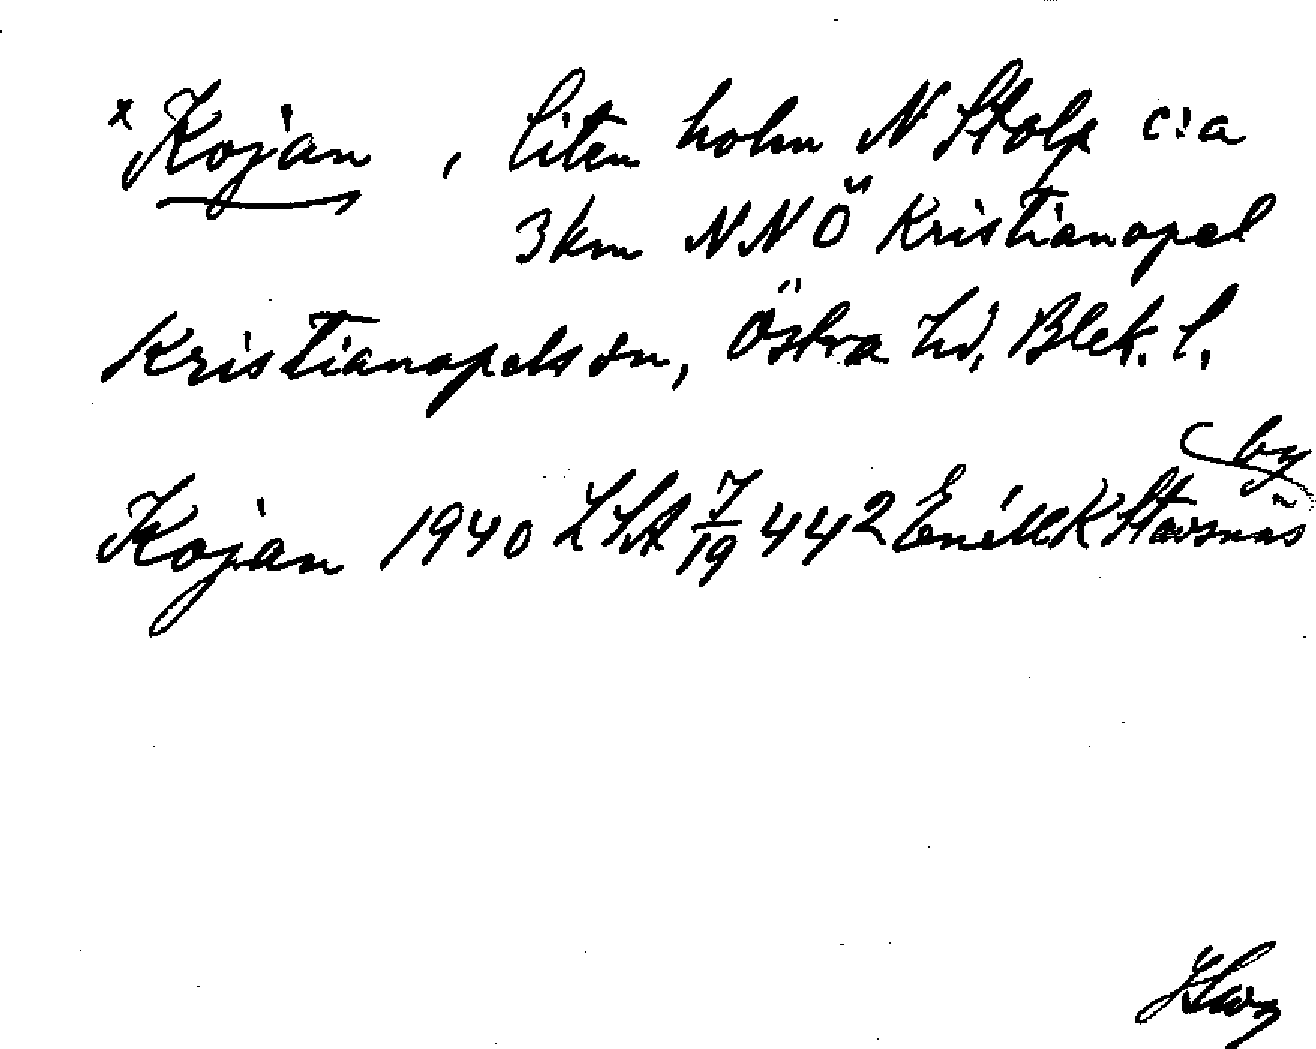 x Kojan , liten holm N Stolp c:a
3 km NNÖ Kristianopel
Kristianopels sn, Östra hd, Blek. l.
by
Kojan 1940 LSA 7/19 442 Enl. MK Stavsnäs